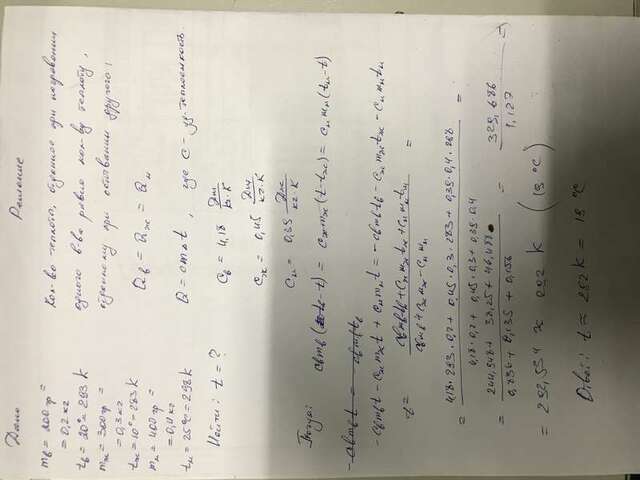 Дано
mв = 200 гр =
= 0,2 кг
tв = 20° = 293 K
mж = 300 гр =
= 0,3 кг
tж = 10° = 283 K
mм = 400 гр =
= 0,4 кг
tм = 25°C = 298 K
Найти: t = ?
Решение
Кол-во теплоты, отданное при нагревании
одного в-ва равно кол-ву теплоты,
отданному при остывании другого:
Qв = Qж = Qм
Q = cmΔt, где c - уд. теплоемкость
Cв = 4,18 Дж/кг·K
Cж = 0,45 Дж/кг·K
Cм = 0,39 Дж/кг·K
Тогда:
cвmв(tв-t) = cжmж(t-tж) = cмmм(tм-t)
-cвmвt - cжmжt + cмmмt = -cвmвtв - cжmжtж - cмmмtм
t = cвmвtв + cжmжtж + cмmмtм / cвmв + cжmж - cмmм =
= 4,18·293·0,2 + 0,45·0,3·283 + 0,39·0,4·298 / 4,18·0,2 + 0,45·0,3 + 0,39·0,4 =
= 244,948 + 38,25 + 46,488 / 0,836 + 0,135 + 0,156 = 329,686 / 1,127 =
= 292,534 ≈ 292 K (19 °C)
Ответ: t ≈ 292 K = 19 °C